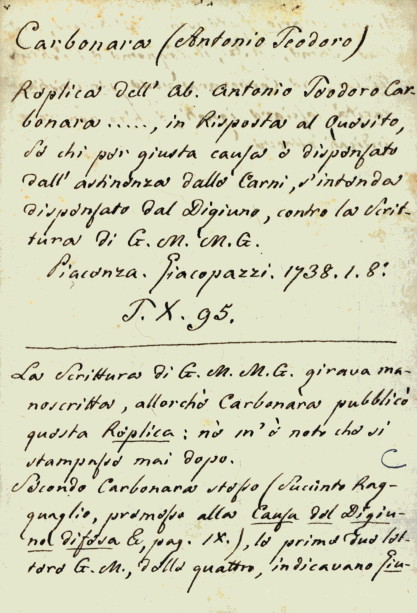 Carbonara (Antonio Teodoro)
Replica dell' Ab. Antonio Teodoro Car-
bonara ....., in Risposta al Quesito,
Se chi per giusta causa è dispensato
dall' astinenza dalle Carni, s'intenda
dispensato dal Digiuno, contro la Scrit-
tura di G. M. M. G.
Piacenza. Giacopazzi. 1738. 1. 8°.
T. X. 95.
La Scrittura di G. M. M. G. girava ma-
noscritta, allorchè Carbonara pubblicò
questa Replica: nè m'è noto che si
stampasse mai dopo.
Secondo Carbonara stesso (Succinto Rag-
guaglio, premesso alla Causa del Digiu-
no difesa &, pag. IX.), le prime due let-
tere G. M., delle quattro, indicavano Giu-